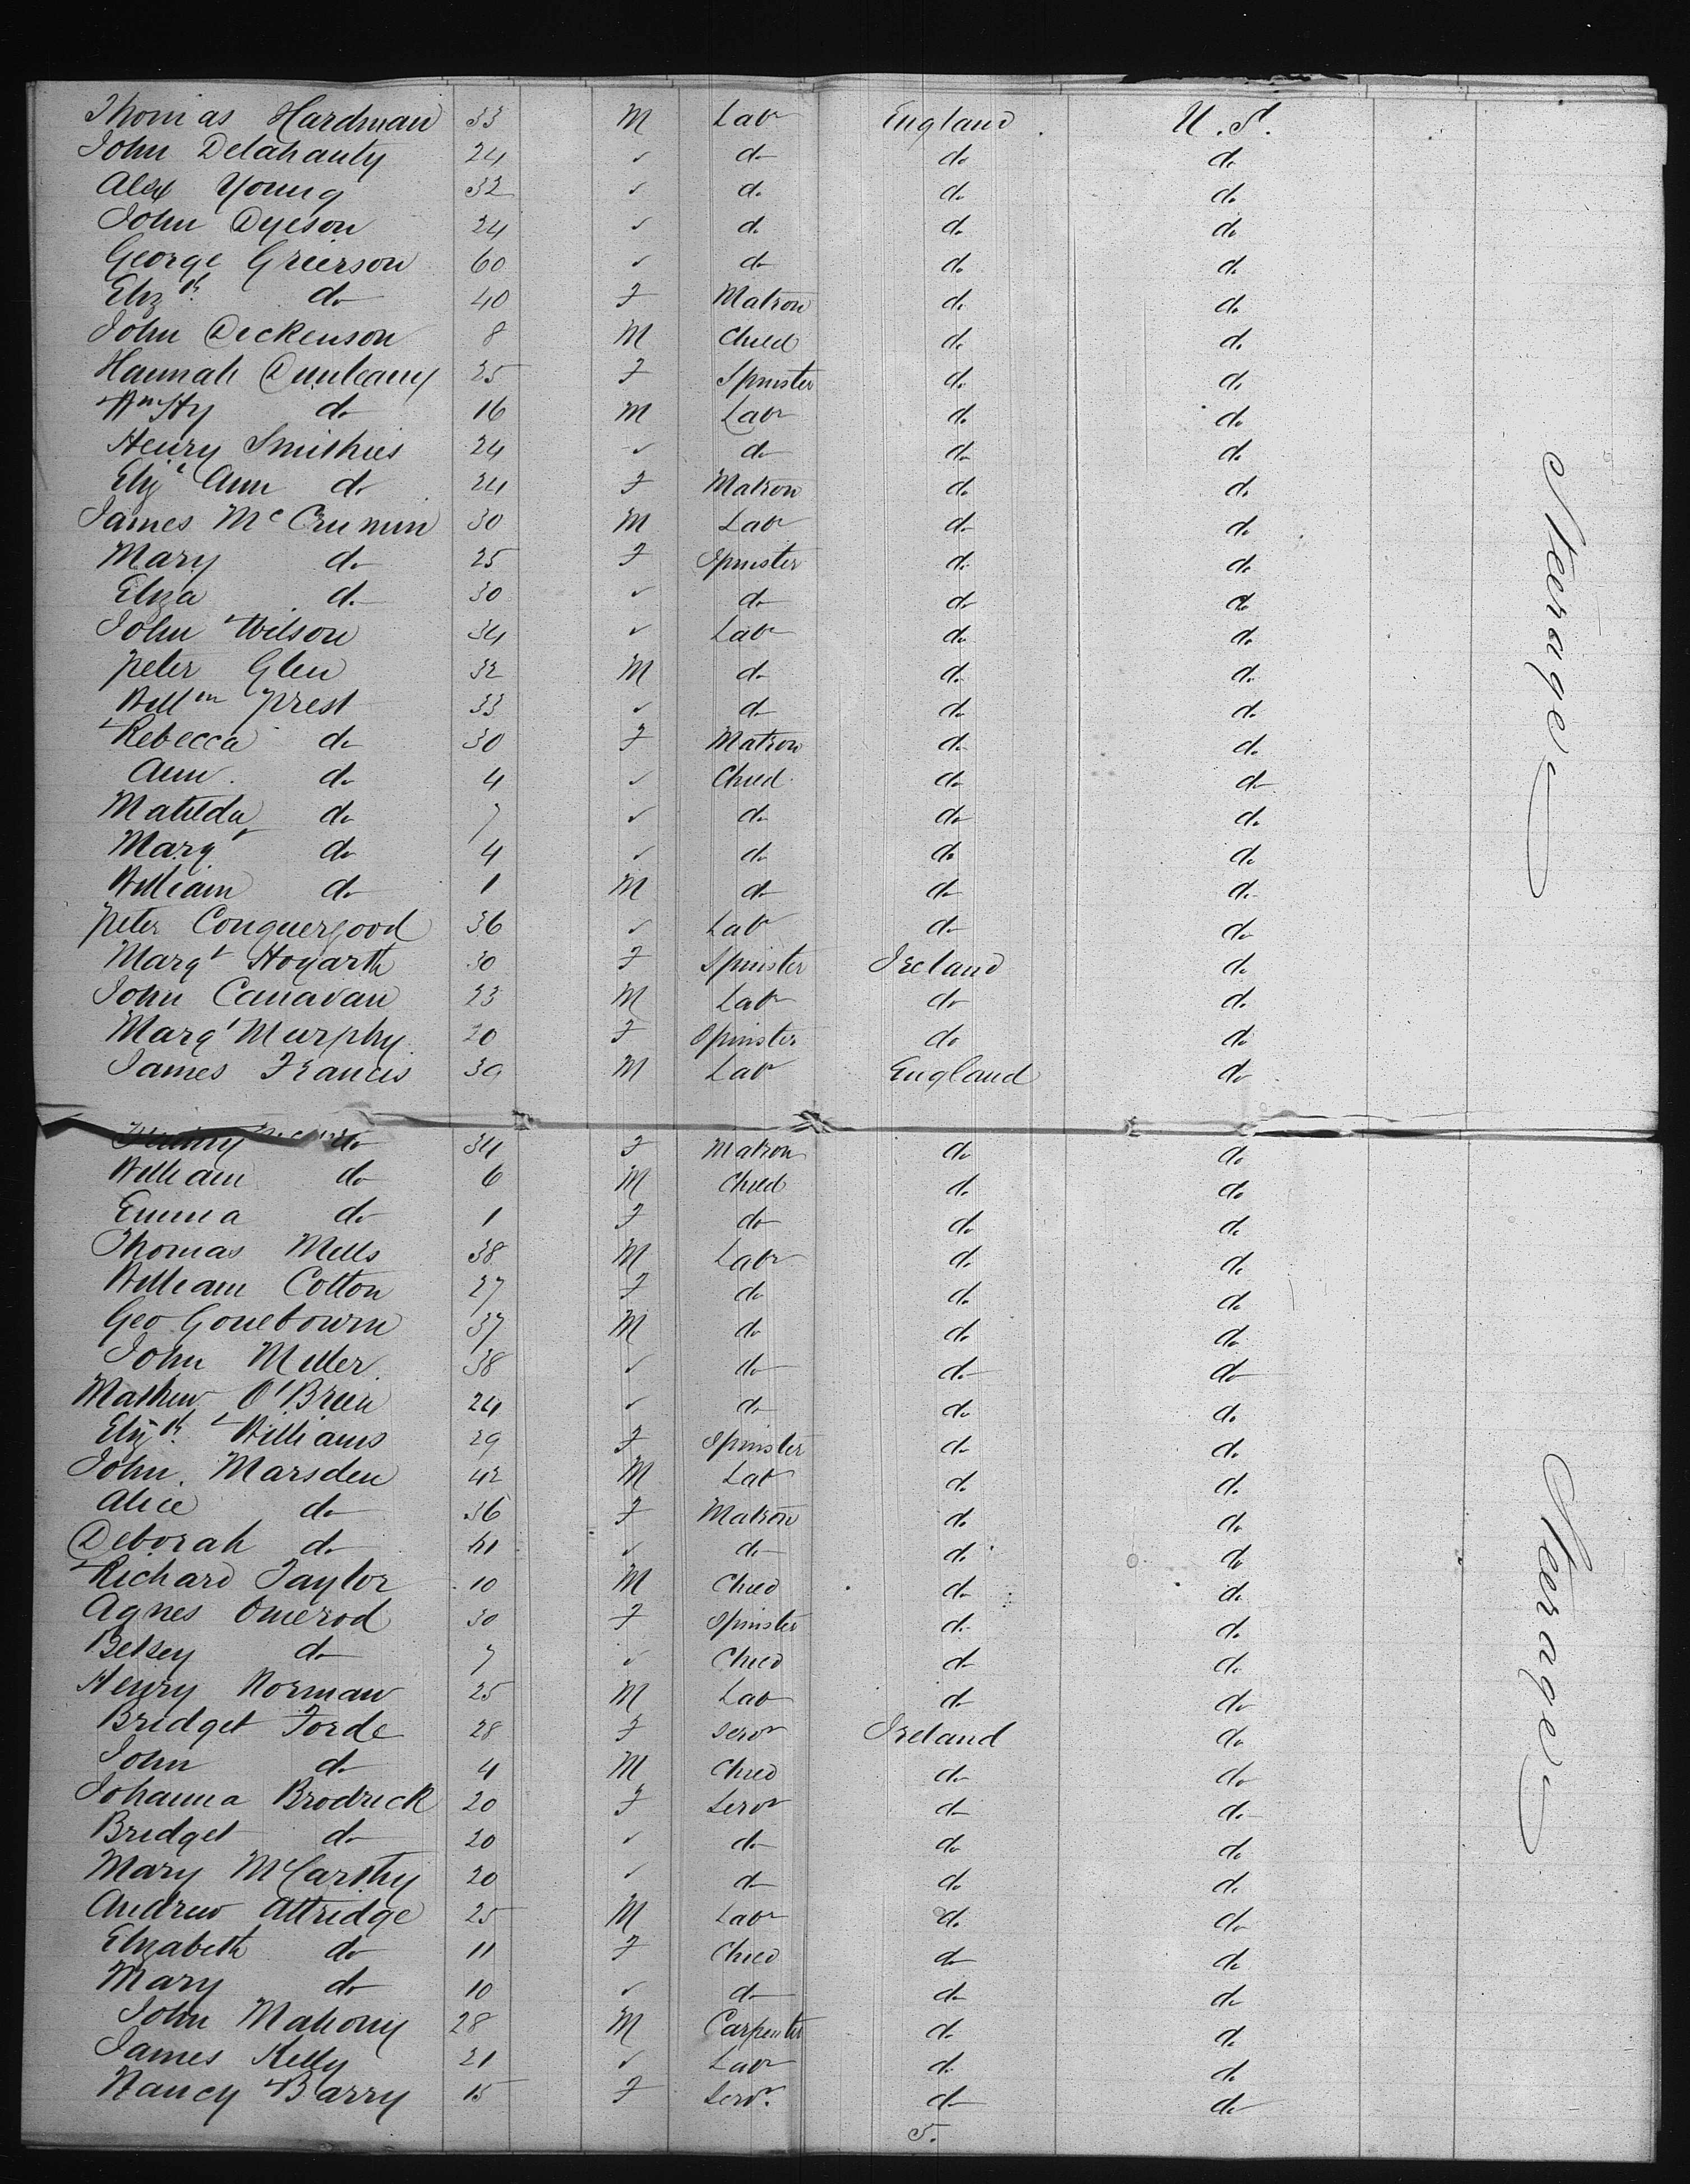 Thomas Hardman 33 M Labr England U.S.
John Delahanty 24 ✓ do do do
Alex Young 32 ✓ do do do
John Dyeson 24 ✓ do do do
George Grierson 60 ✓ do do do
Elizth do 40 F Matron do do
John Dickenson 8 M Child do do
Hannah Dunleavy 25 F Spinster do do
Wm Hy do 16 M Labr do do
Henry Smithies 24 ✓ do do do
Eliz Ann do 24 F Matron do do
James McCrumin 30 M Labr do do
Mary do 25 F Spinster do do
Eliza do 30 ✓ do do do
John Wilson 34 ✓ Labr do do
Peter Glen 32 M do do do
Willm Prest 33 ✓ do do do
Rebecca do 30 F Matron do do
Ann do 4 ✓ Child do do
Matilda do 7 ✓ do do do
Margt do 4 ✓ do do do
William do 1 M do do do
Peter Conquergood 36 ✓ Labr do do
Margt Hogarth 30 F Spinster Ireland do
John Canavan 23 M Labr do do
Margt Murphy 20 F Spinster do do
James Francis 30 M Labr England do
do 34 F Matron do do
William do 6 M Child do do
Emma do 1 F do do do
Thomas Mills 38 M Labr do do
William Cotton 27 F do do do
Geo Gouebourn 37 M do do do
John Miller 38 ✓ do do do
Mathew O'Brien 24 ✓ do do do
Elizth Williams 29 F Spinster do do
John Marsden 42 M Labr do do
Alice do 36 F Matron do do
Deborah do ✓ do do do
Richard Taylor 10 M Child do do
Agnes Omerod 30 F Spinster do do
Betsey do 7 ✓ Child do do
Henry Norman 25 M Labr do do
Bridget Forde 28 F Servt Ireland do
John do 4 M Child do do
Johanna Brodrick 20 F Servt do do
Bridget do 20 ✓ do do do
Mary McCarthy 20 ✓ do do do
Andrew Attridge 25 M Labr do do
Elizabeth do 11 F Child do do
Mary do 10 ✓ do do do
John Mahony 28 M Carpenter do do
James Kelly 21 ✓ Labr do do
Nancy Barry 15 F Servt do do
5.
Steerage
Steerage